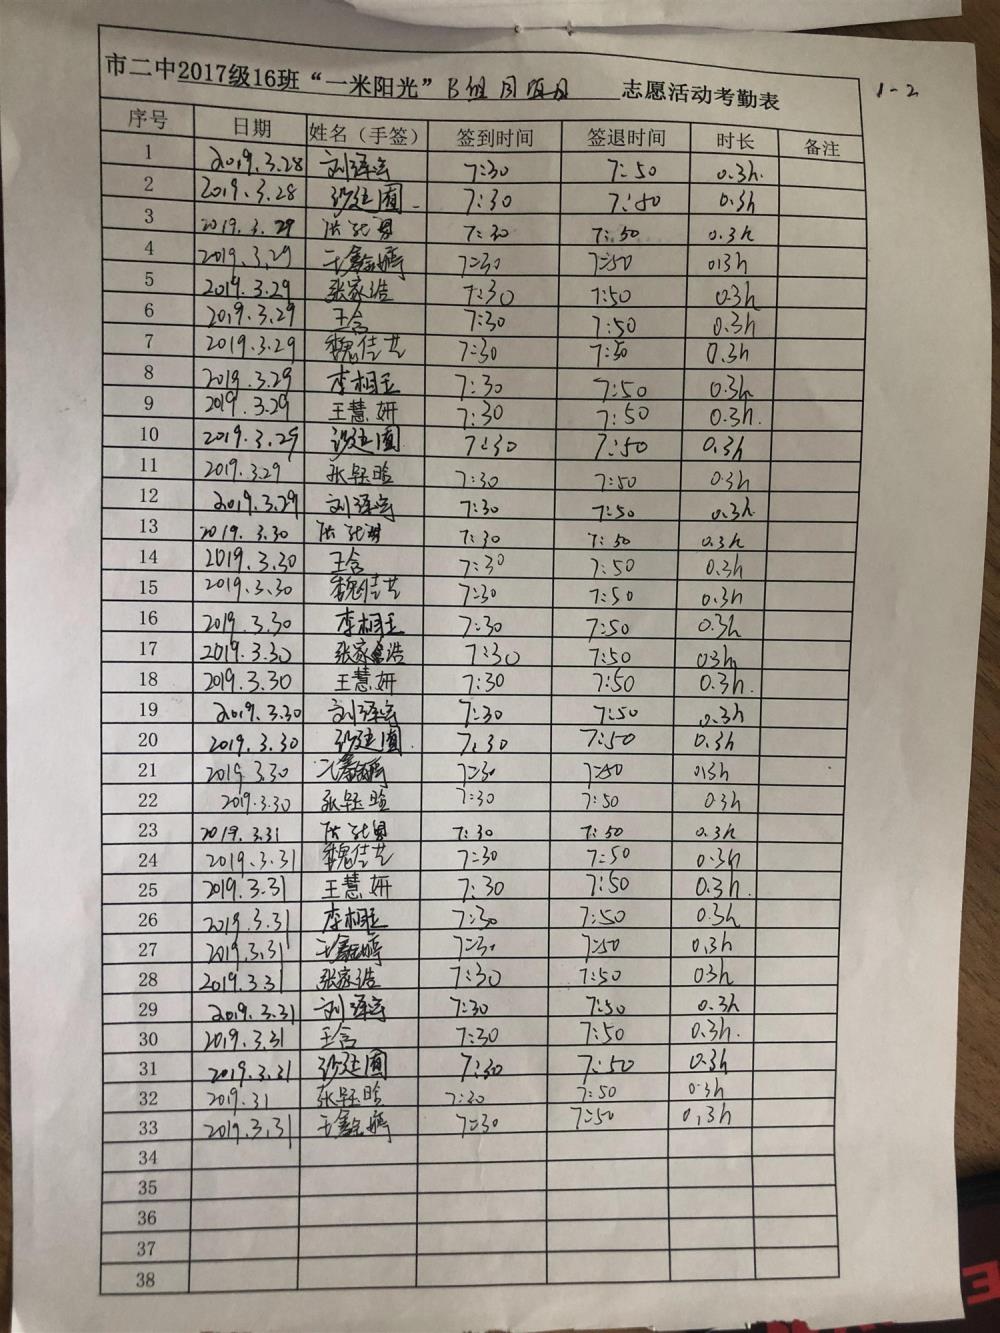 市二中2017级16班“一米阳光”B组周项目 志愿活动考勤表
1-2
序号 日期 姓名（手签） 签到时间 签退时间 时长 备注
1 2019.3.28 刘泽宇 7:30 7:50 0.3h
2 2019.3.28 7:30 7:50 0.3h
3 2019.3.29 7:30 7:50 0.3h
4 2019.3.29 王鑫 7:30 7:50 0.3h
5 2019.3.29 张家浩 7:30 7:50 0.3h
6 2019.3.29 王含 7:30 7:50 0.3h
7 2019.3.29 魏佳艺 7:30 7:50 0.3h
8 2019.3.29 李相玉 7:30 7:50 0.3h
9 2019.3.29 王慧妍 7:30 7:50 0.3h.
10 2019.3.29 7:30 7:50 0.3h
11 2019.3.29 张钰晗 7:30 7:50 0.3h
12 2019.3.29 刘泽宇 7:30 7:50 0.3h
13 2019.3.30 7:30 7:50 0.3h
14 2019.3.30 王含 7:30 7:50 0.3h
15 2019.3.30 魏佳艺 7:30 7:50 0.3h
16 2019.3.30 李相玉 7:30 7:50 0.3h
17 2019.3.30 张家浩 7:30 7:50 03h
18 2019.3.30 王慧妍 7:30 7:50 0.3h.
19 2019.3.30 刘泽宇 7:30 7:50 0.3h
20 2019.3.30 7:30 7:50 0.3h
21 2019.3.30 王鑫 7:30 7:50 0.3h
22 2019.3.30 张钰晗 7:30 7:50 0.3h
23 2019.3.31 7:30 7:50 0.3h
24 2019.3.31 魏佳艺 7:30 7:50 0.3h
25 2019.3.31 王慧妍 7:30 7:50 0.3h.
26 2019.3.31 李相玉 7:30 7:50 0.3h
27 2019.3.31 王鑫 7:30 7:50 0.3h
28 2019.3.31 张家浩 7:30 7:50 03h
29 2019.3.31 刘泽宇 7:30 7:50 0.3h
30 2019.3.31 王含 7:30 7:50 0.3h.
31 2019.3.31 7:30 7:50 0.3h
32 2019.31 张钰晗 7:30 7:50 0.3h
33 2019.3.31 王鑫 7:30 7:50 0.3h
34
35
36
37
38